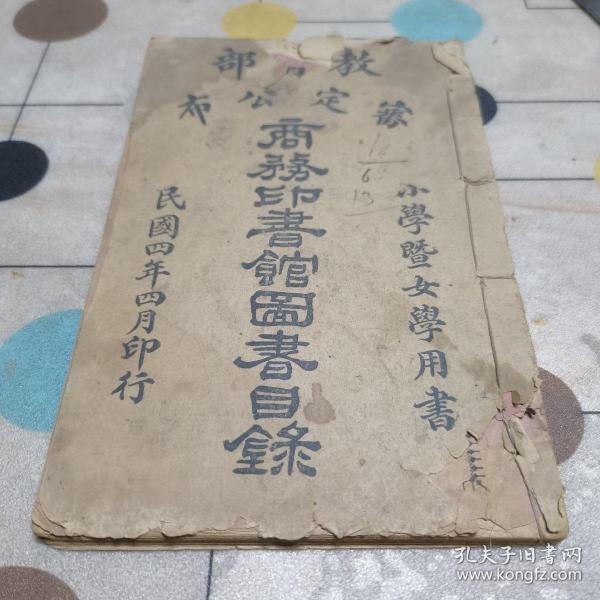 教育部
審定公布
小學暨女學用書
商務印書館圖書目錄
民國四年四月印行
孔夫子旧书网
www.kongfz.com